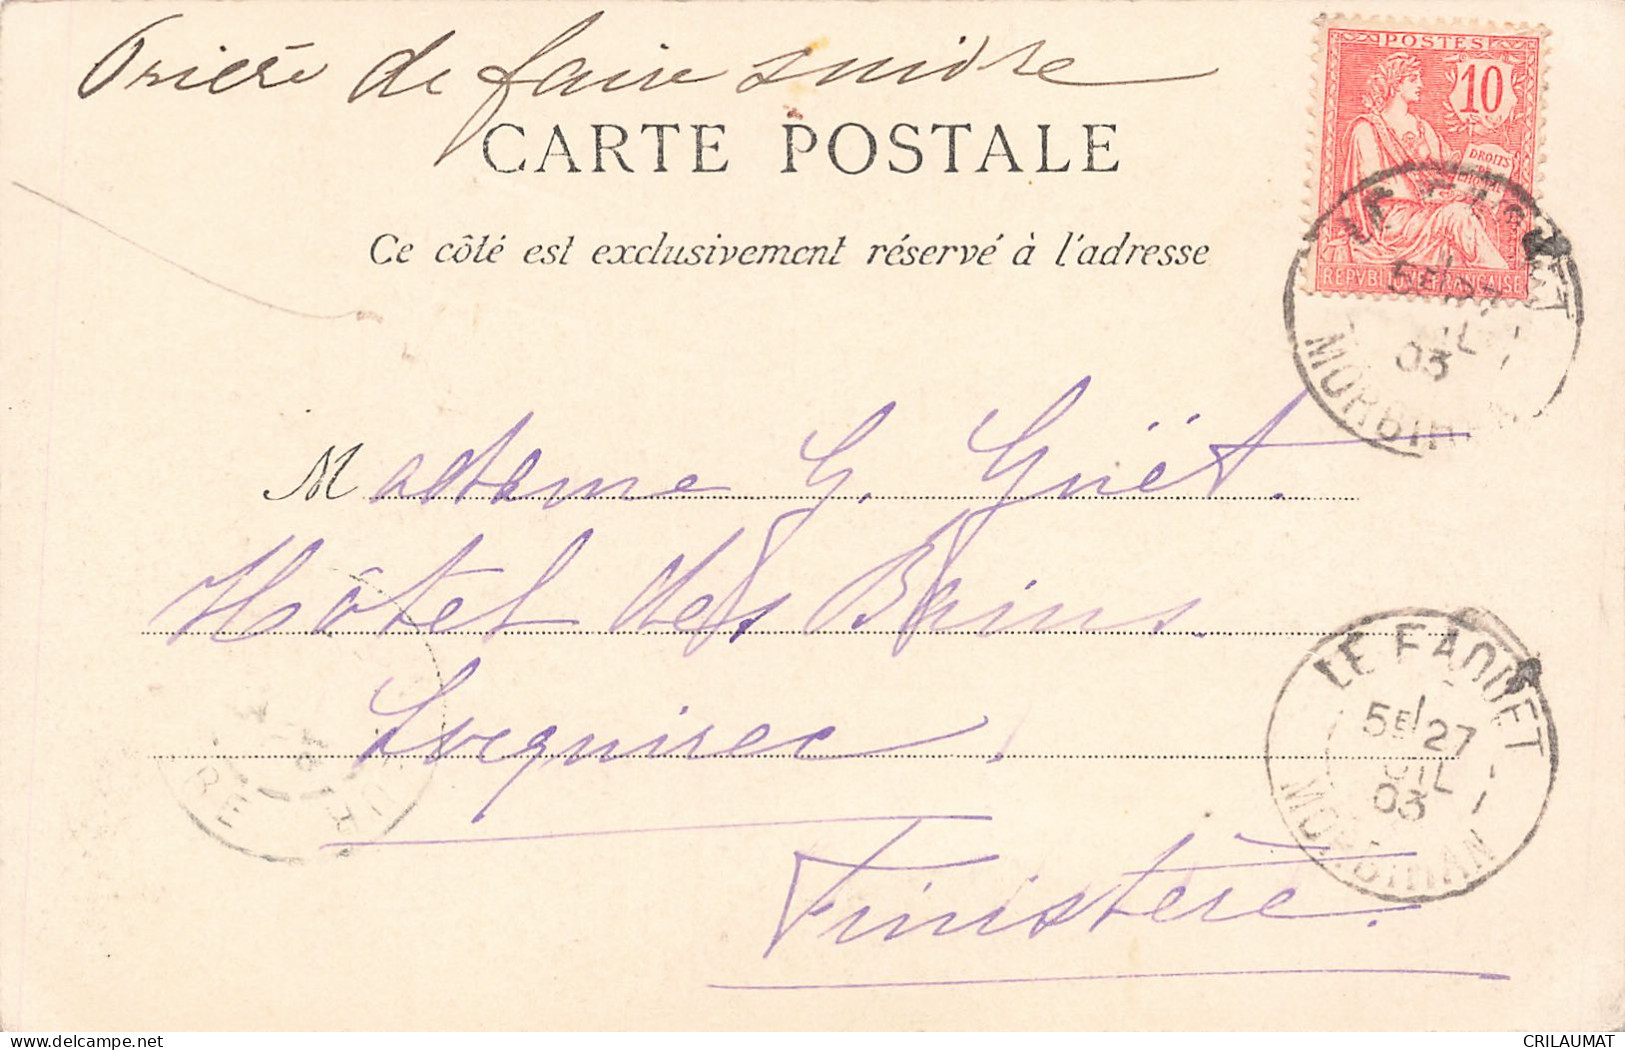 Prière de faire suivre
CARTE POSTALE
Ce côté est exclusivement réservé à l'adresse
POSTES
10
DROITS
REPVBLIQVE FRANÇAISE
5E 27
03
MORBIHAN
Madame G. Guët.
Hôtel des Bains.
Locquirec.
Finistère.
LE FAOUET
5E 27
JUIL
03
MORBIHAN
RE
delcampe.net
CRILAUMAT